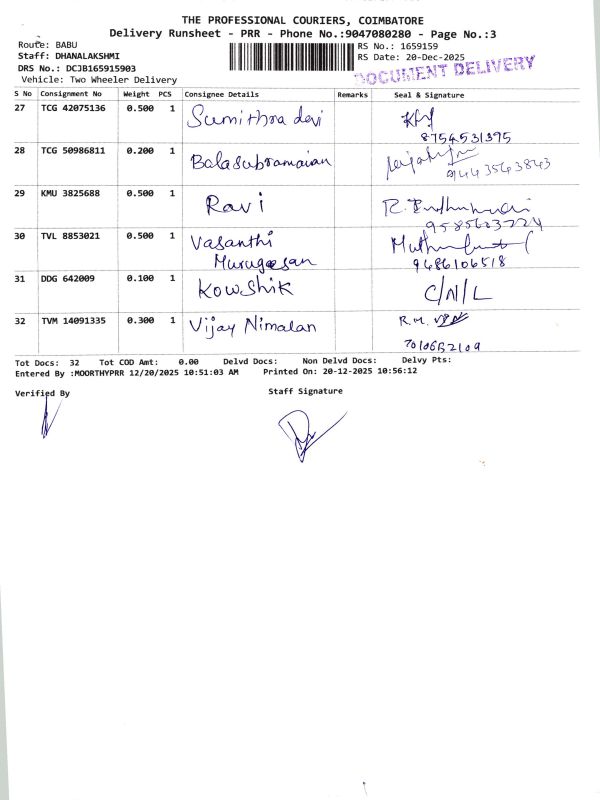 THE PROFESSIONAL COURIERS, COIMBATORE
Delivery Runsheet - PRR - Phone No.:9047080280 - Page No.:3
Route: BABU
RS No.: 1659159
Staff: DHANALAKSHMI
RS Date: 20-Dec-2025
DRS No.: DCJB165915903
DOCUMENT DELIVERY
Vehicle: Two Wheeler Delivery
S No Consignment No Weight PCS Consignee Details Remarks Seal & Signature
27 TCG 42075136 0.500 1 Sumithra devi
8754531395
28 TCG 50986811 0.200 1 Balasubramaian
9443563843
29 KMU 3825688 0.500 1 Ravi
9585603724
30 TVL 8853021 0.500 1 Vasanthi
Murugesan
9486106518
31 DDG 642009 0.100 1 Kowshik C/N/L
32 TVM 14091335 0.300 1 Vijay Nimalan R.M.
Tot Docs: 32 Tot COD Amt: 0.00 Delvd Docs: Non Delvd Docs: Delvy Pts:
Entered By :MOORTHYPRR 12/20/2025 10:51:03 AM Printed On: 20-12-2025 10:56:12
Verified By Staff Signature